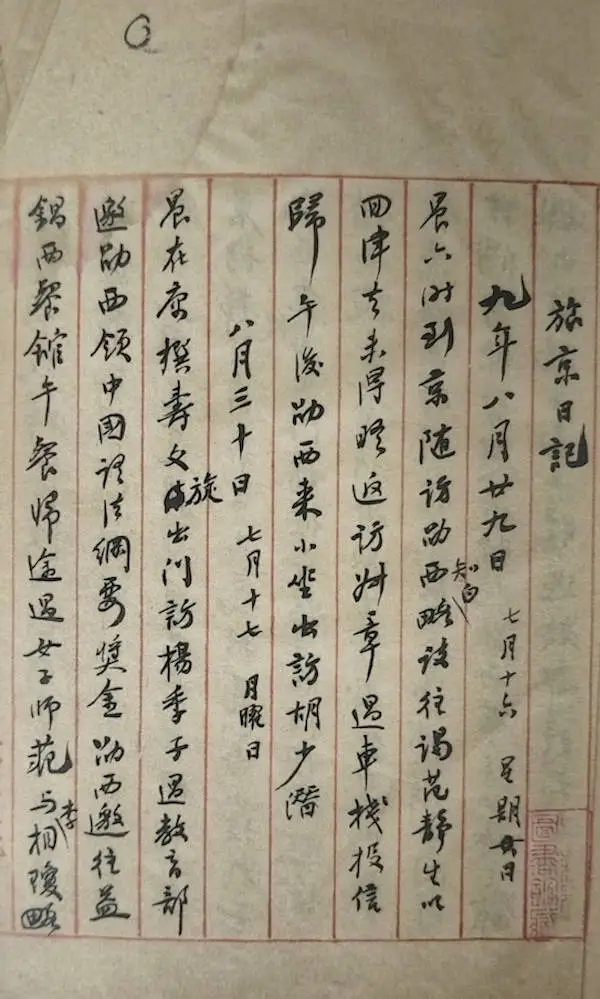 旅京日記
九年八月廿九日 七月十六 星期日
晨六时到京随訪劭西知白略谈往謁范静生以
回津去未得晤返訪叔章過車棧投信
歸午後劭西来小坐出訪胡少潛
八月三十日 七月十七 月曜日
晨在京撰壽文旋出门訪楊季子過教育部
邀劭西領中國语法綱要奨金劭西邀往益
錩西餐館午餐帰途過女子師范与李相瓊略